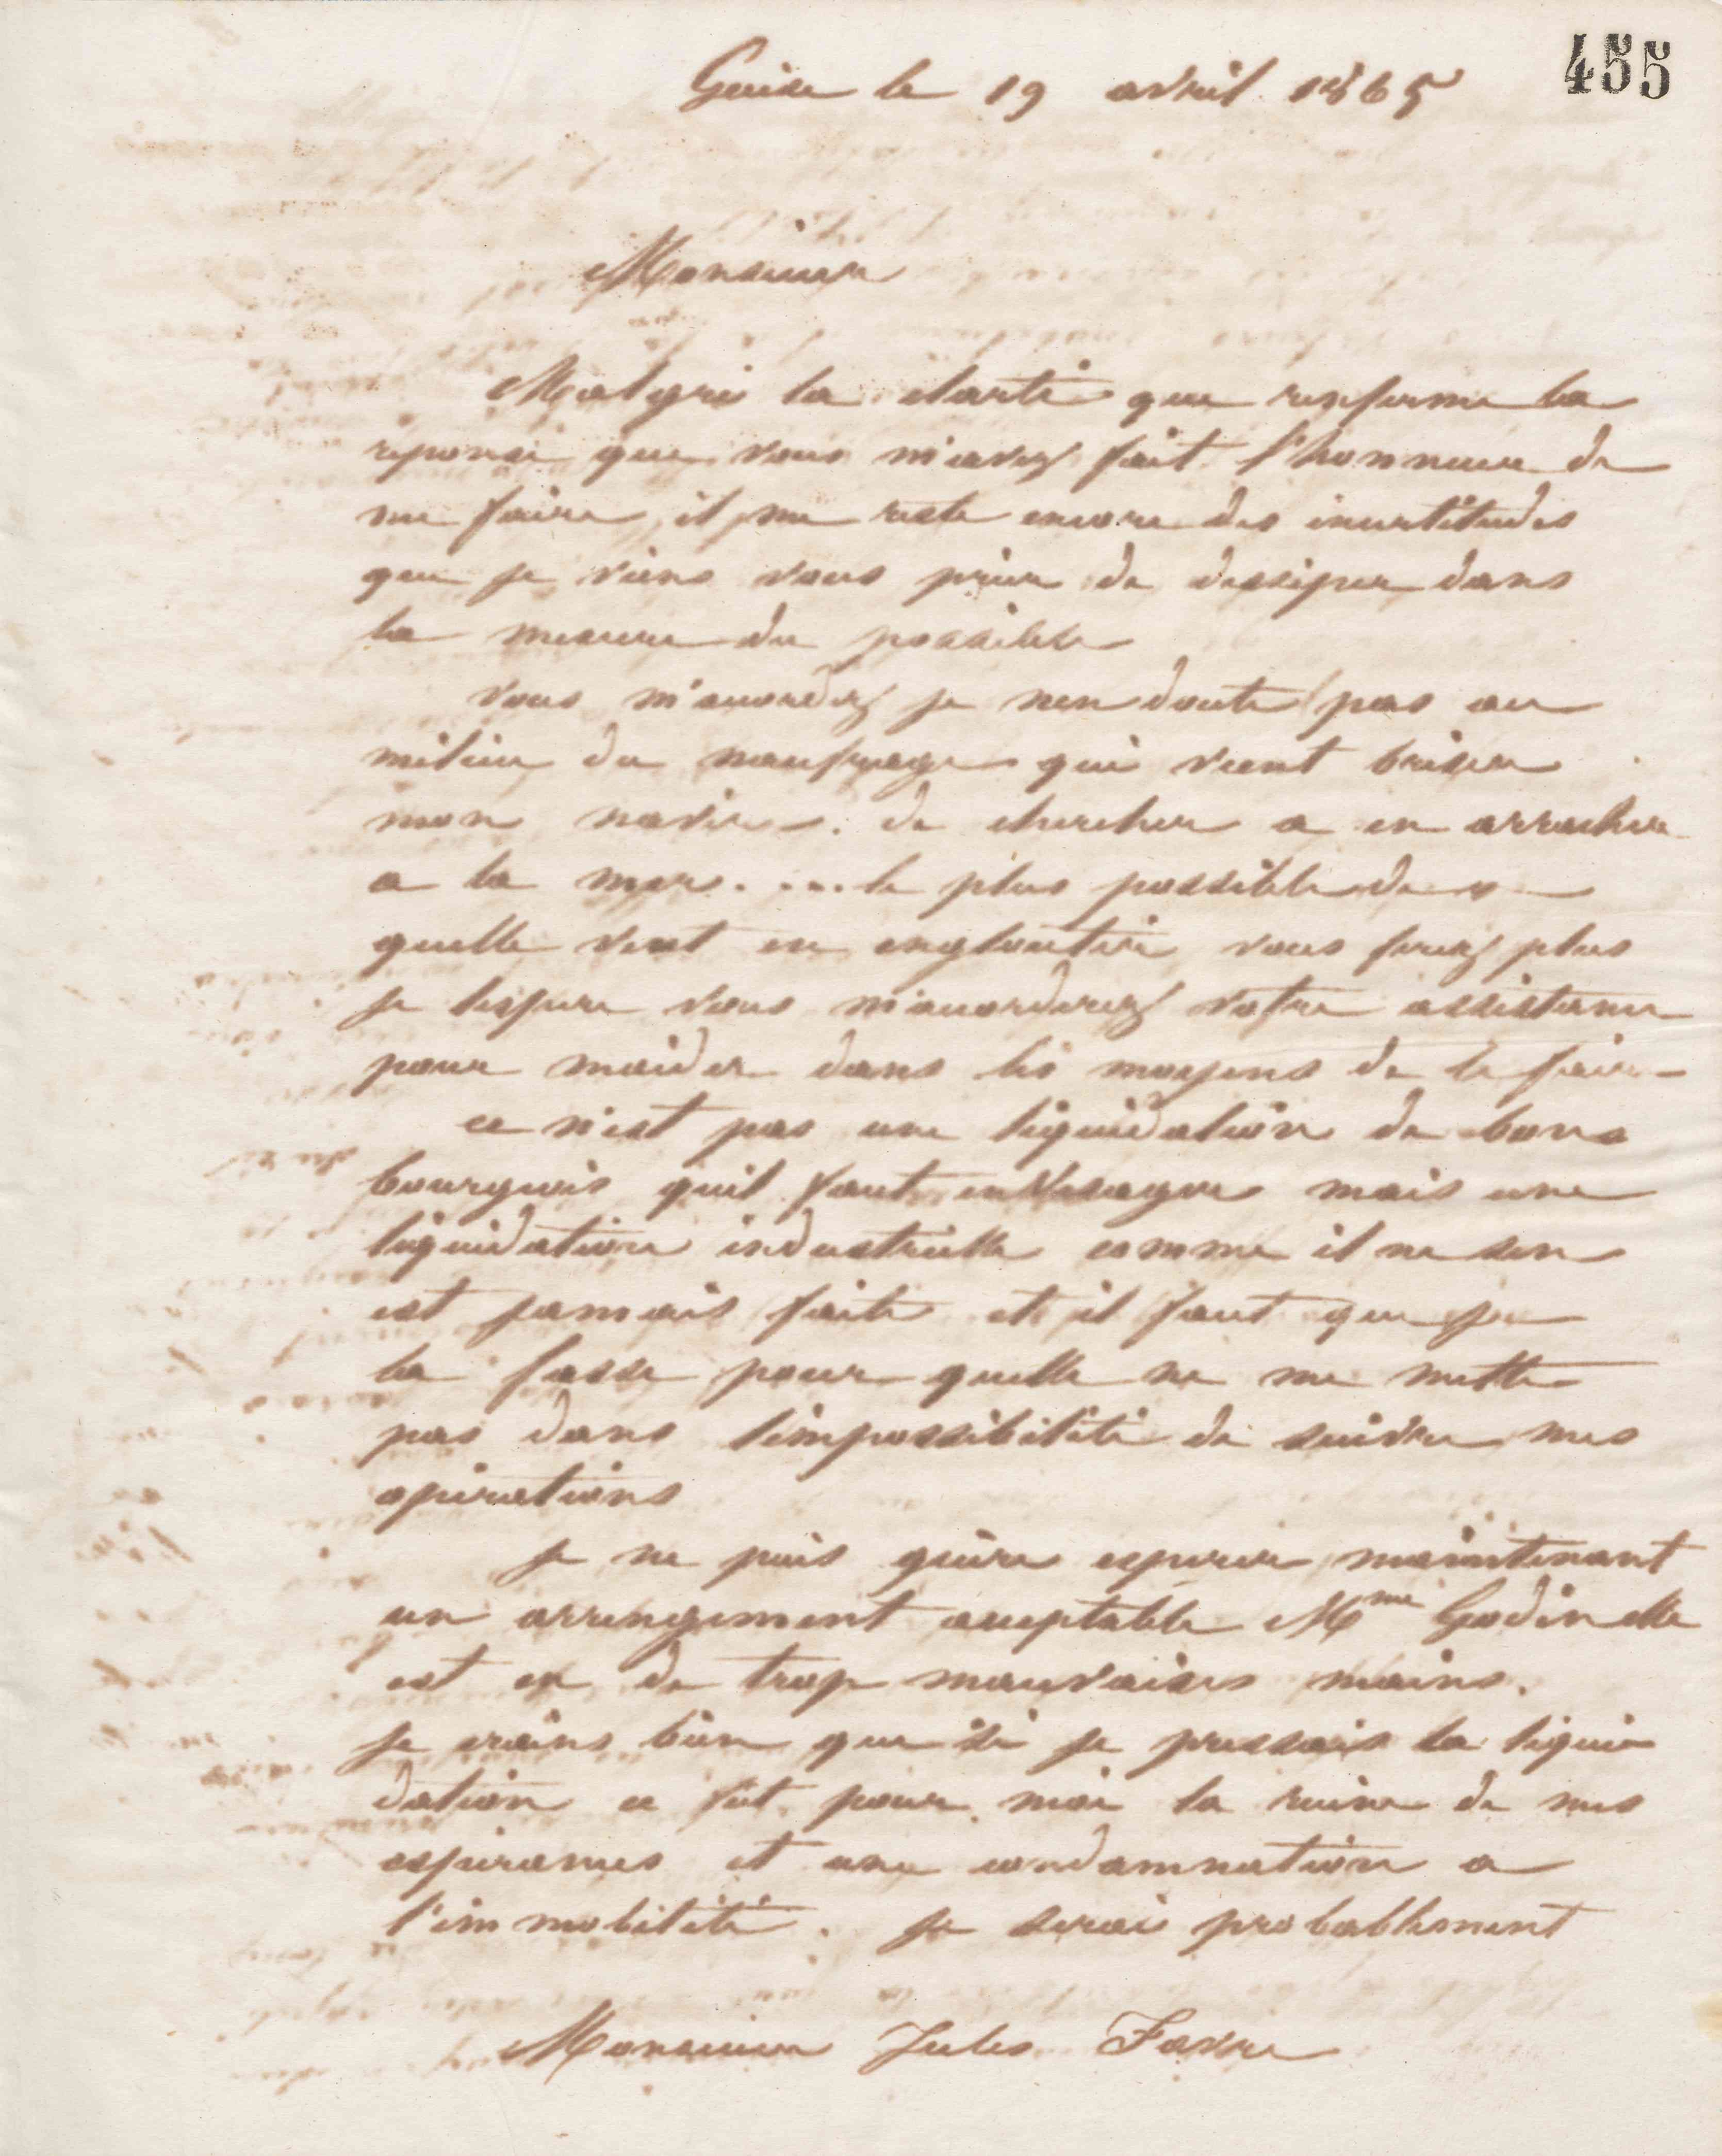 455
Guise le 19 avril 1865
Monsieur
Malgré la clarté que renferme la
réponse que vous m'avez fait l'honneur de
me faire, il me reste encore des incertitudes
que je viens vous prier de dissiper dans
la mesure du possible
vous m'accordez je nen doute pas au
milieu du naufrage qui vient briser
mon navire. de chercher a en arracher
a la mer. ... le plus possible de ce
quelle veut en engloutir vous ferez plus
je lespere vous m'accorderez votre assistance
pour maider dans les moyens de le faire
ce n'est pas une liquidation de bons
bourgeois quil faut envisager mais une
liquidation industrielle comme il ne sen
est jamais faite et il faut que je
la fasse pour quelle ne me mette
pas dans limpossibilité de suivre mes
opérations
je ne puis guère esperer maintenant
un arrangement acceptable Mme Godin elle
est en de trop mauvaises mains.
je crains bien que si je pressais la liqui
dation ce fut pour moi la ruine de mes
espérances et une condamnation a
l'immobilité. je serai probablement
Monsieur Jules Favre